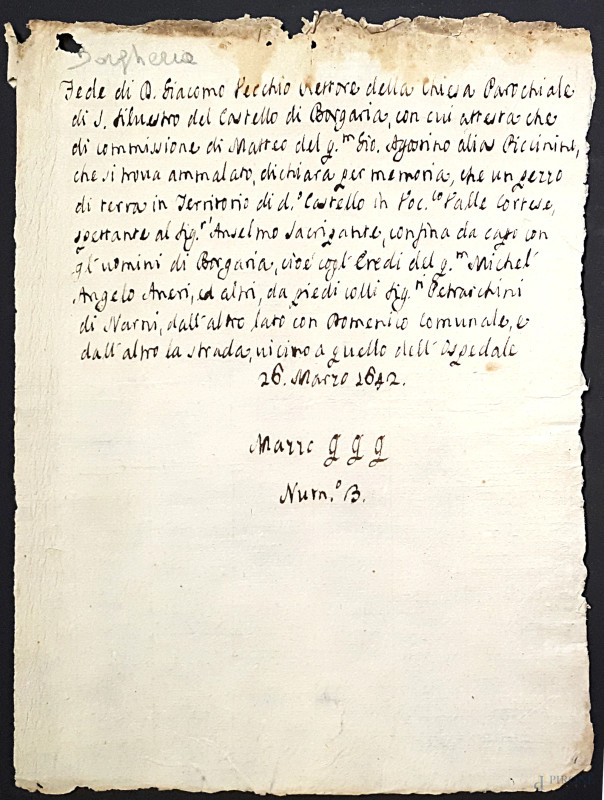 Borgheria
Fede di D. Giacomo Vecchio Rettore della Chiesa Parochiale
di S. Silvestro del Castello di Borgaria, con cui attesta che
di commissione di Matteo del q.m Gio. Agostino alias Piccinino,
che si trova ammalato, dichiara per memoria, che un pezzo
di terra in Territorio di d.o Castello in Voc.lo Valle Cortese,
spettante al Sig.r Anselmo Sacripante, confina da capo con
gl'uomini di Borgaria, cioè cogl'Eredi del q.m Michel'
Angelo Aneri, ed altri, da piedi colli Sig.ri Petrarchini
di Narni, dall'altro lato con Domenico Comunale, e
dall'altro la strada, vicino a quello dell'Ospedale
26. Marzo 1642.
Mazzo g g g
Num.o B.